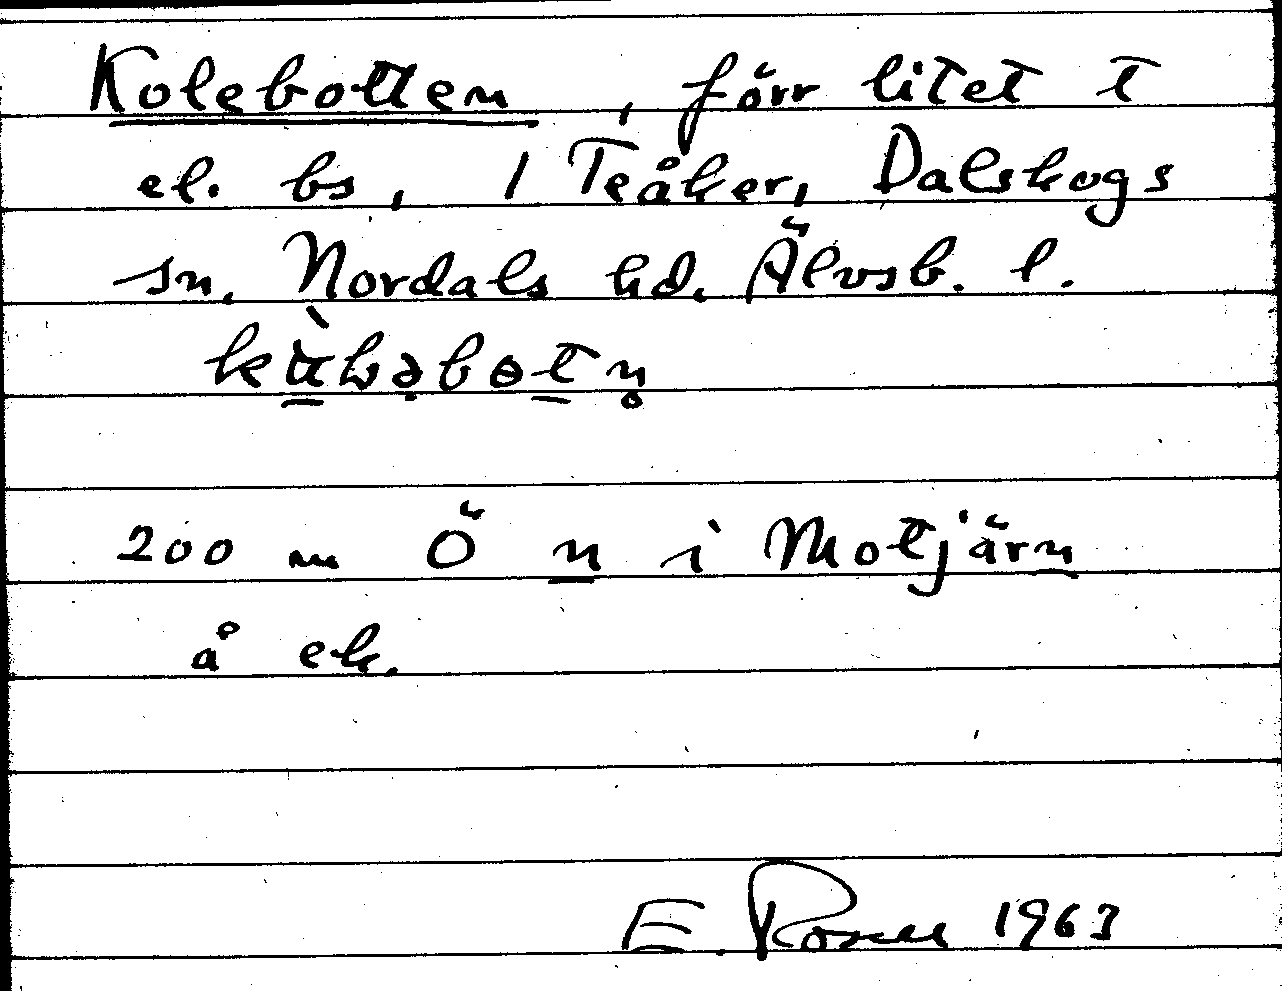 Kolebotten, förr litet t
el. bs, 1 Teåker, Dalskogs
sn. Nordals hd. Älvsb. l.
200 m Ö n i Motjärn
å ek.
1963